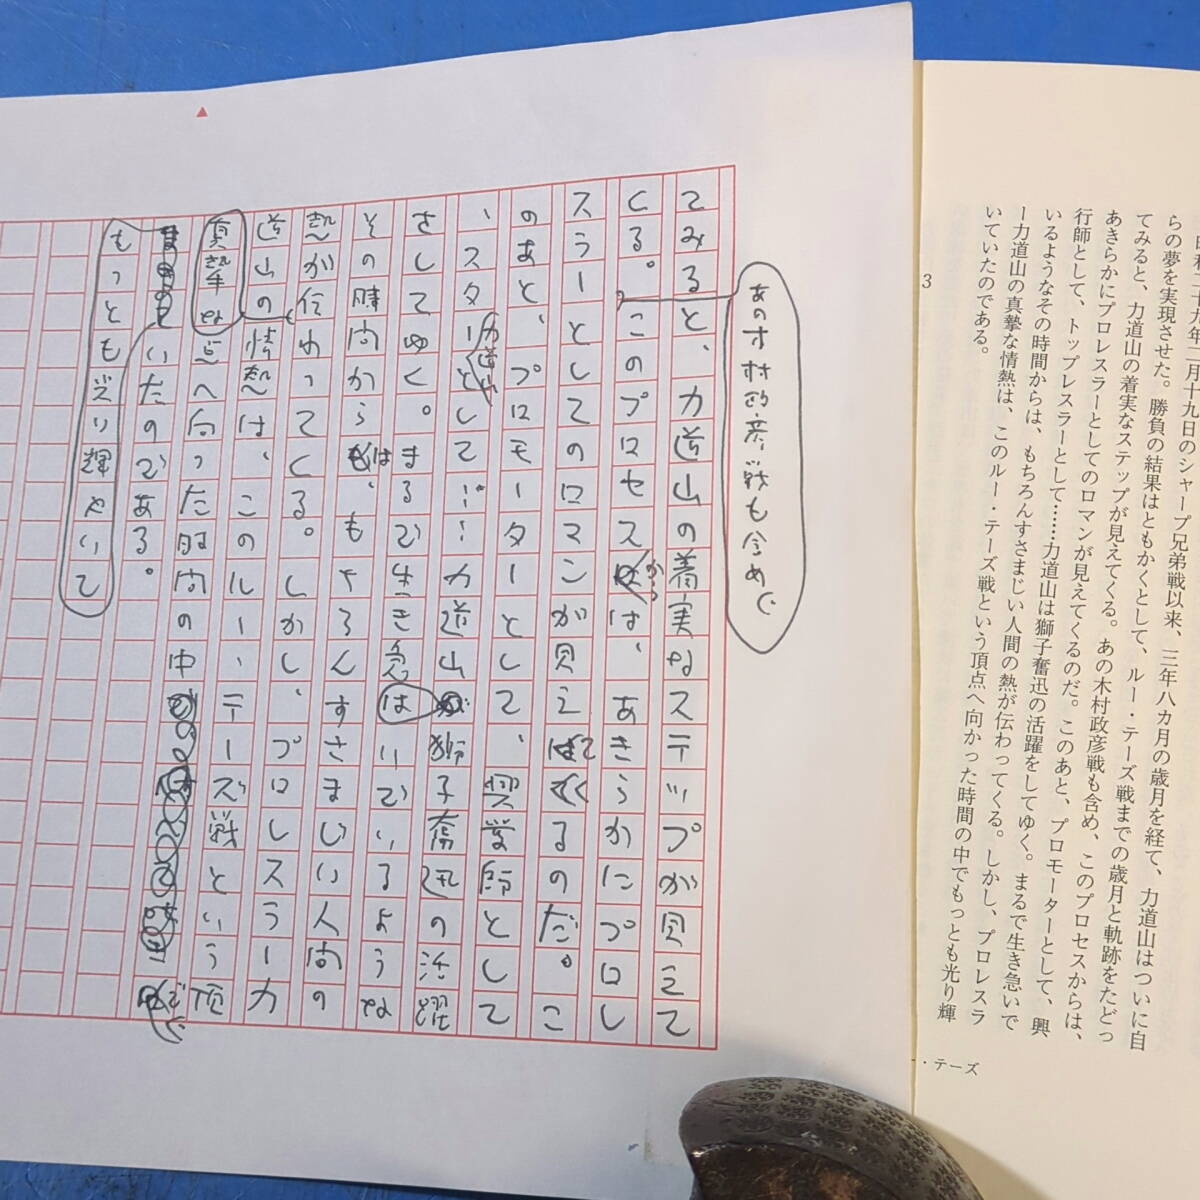 昭和二十九年二月十九日のシャープ兄弟戦以来、三年八カ月の歳月を経て、力道山はついに自
らの夢を実現させた。勝負の結果はともかくとして、ルー・テーズ戦までの歳月と軌跡をたどっ
てみると、力道山の着実なステップが見えてくる。あの木村政彦戦も含め、このプロセスからは、
あきらかにプロレスラーとしてのロマンが見えてくるのだ。このあと、プロモーターとして、興
行師として、トップレスラーとして……力道山は獅子奮迅の活躍をしてゆく。まるで生き急いで
いるようなその時間からは、もちろんすさまじい人間の熱が伝わってくる。しかし、プロレスラ
ー力道山の真摯な情熱は、このルー・テーズ戦という頂点へ向かった時間の中でもっとも光り輝
いていたのである。
3
・テーズ
あの木村政彦戦も含めて
てみると、力道山の着実なステップが見えて
くる。このプロセスからは、あきらかにプロレ
スラーとしてのロマンが見えてくるのだ。こ
のあと、プロモーターとして、興業師として
、スターとして……力道山は獅子奮迅の活躍
さしてゆく。まるで生き急いでいるような
その時間からは、もちろんすさまじい人間の
熱が伝わってくる。しかし、プロレスラー力
道山の情熱は、このルー・テーズ戦という頂
真摯な
点へ向った時間の中で
いたのである。
もっとも光り輝やいて